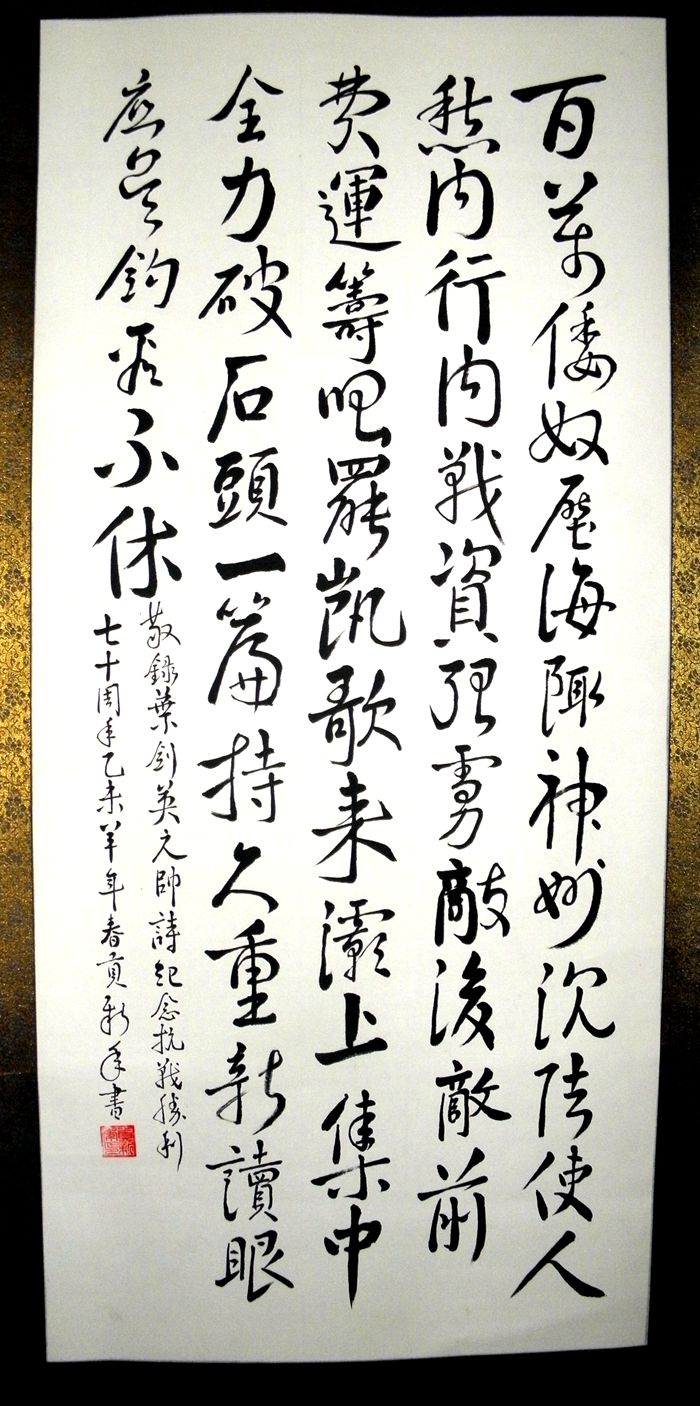 百萬倭奴壓海陬神州沉陸使人
愁内行内戰資强虜敵後敵前
費運籌唱罷凱歌来灞上集中
全力破石頭一篇持久重新讀眼
底吴鈎看不休
敬録葉剑英元帥詩纪念抗戰勝利
七十周年乙未羊年春貢新年書